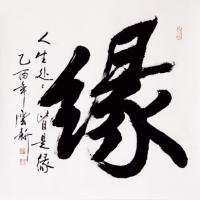 缘
人生处々皆是缘
乙酉年